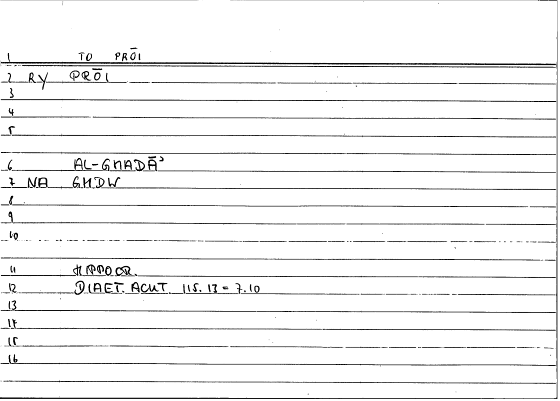 1 TO PRŌI
2 RY PRŌI
3
4
5
6 AL-GHADĀʾ
7 NA GHDW
8
9
10
11 HIPPOCR.
12 DIAET. ACUT. 115.13 = 7.10
13
14
15
16